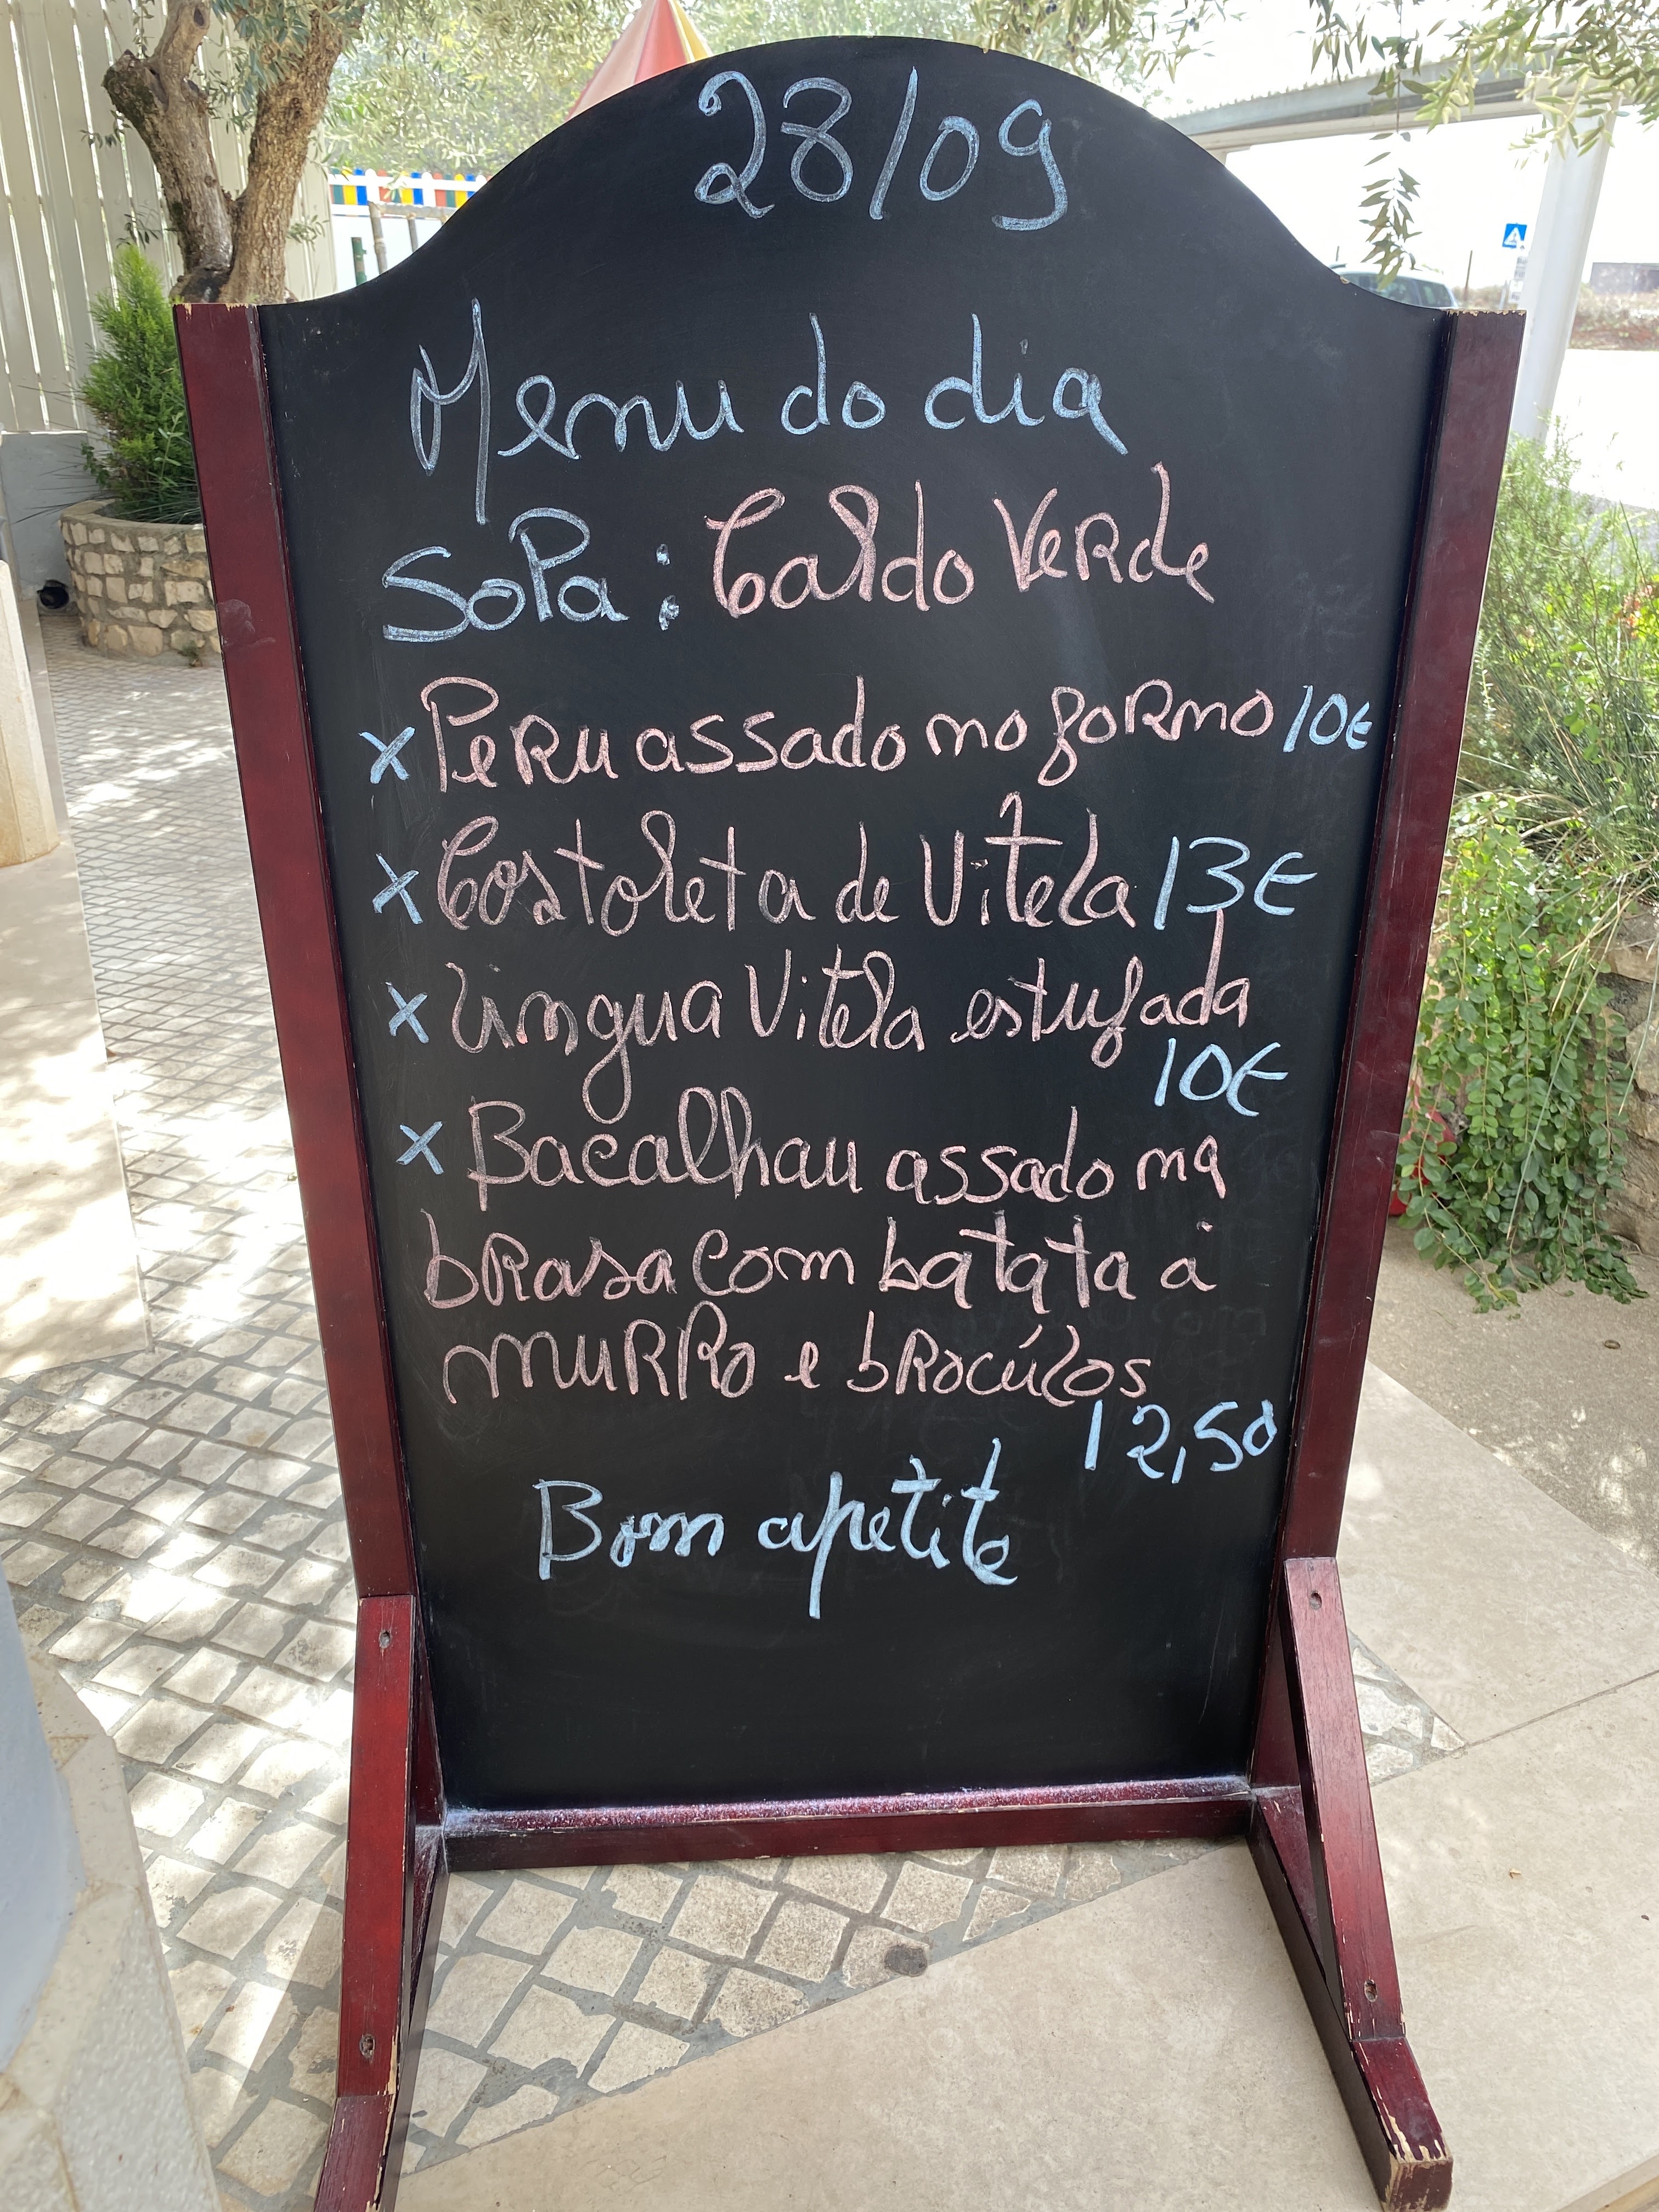 28/09
Menu do dia
Sopa: Caldo Verde
x Peru assado no forno 10€
x Costoleta de Vitela 13€
x Língua Vitela estufada
10€
x Bacalhau assado na
brasa com batata á
murro e brocúlos
12,50
Bom apetite